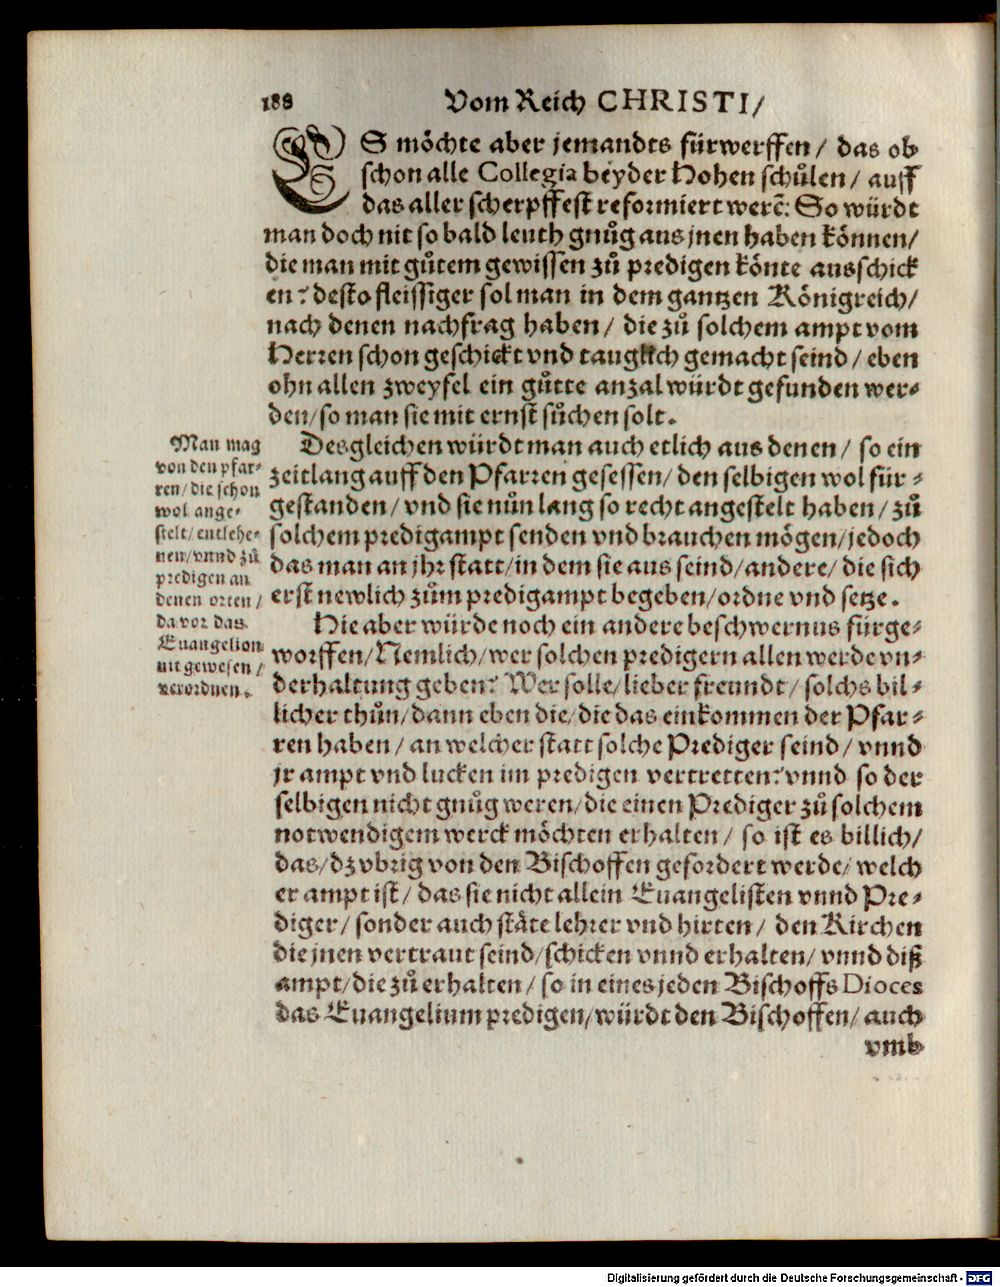 188 Vom Reich CHRISTI/
ES möchte aber jemandts fürwerffen/ das ob
schon alle Collegia beyder Hohen schůlen/ auff
das aller scherpffest reformiert werẽ: So würdt
man doch nit so bald leuth gnůg aus jnen haben können/
die man mit gůtem gewissen zů predigen könte ausschick
en? desto fleissiger sol man in dem gantzen Königreich/
nach denen nachfrag haben/ die zů solchem ampt vom
Herren schon geschickt vnd tauglich gemacht seind/ eben
ohn allen zweyfel ein gůtte anzal würdt gefunden wer-
den/ so man sie mit ernst sůchen solt.
Desgleichen würdt man auch etlich aus denen/ so ein
zeitlang auff den Pfarren gesessen/ den selbigen wol für-
gestanden/ vnd sie nůn lang so recht angestelt haben/ zů
solchem predigampt senden vnd brauchen mögen/ jedoch
das man an jhr statt/ in dem sie aus seind/ andere/ die sich
erst newlich zům predigampt begeben/ ordne vnd setze.
Man mag
von den pfar-
ren/ die schon
wol ange-
stelt/ entlehe-
nen/ vnnd zů
predigen an
denen orten/
da vor das
Euangelion
nit gewesen/
verordnen.
Hie aber würde noch ein andere beschwernus fürge-
worffen/ Nemlich/ wer solchen predigern allen werde vn-
derhaltung geben? Wer solle/ lieber freundt/ solchs bil-
licher thůn/ dann eben die/ die das einkommen der Pfar-
ren haben/ an welcher statt solche Prediger seind/ vnnd
jr ampt vnd lucken im predigen vertretten? vnnd so der
selbigen nicht gnůg weren/ die einen Prediger zů solchem
notwendigem werck möchten erhalten/ so ist es billich/
das/ dz vbrig von den Bischoffen gefordert werde/ welch
er ampt ist/ das sie nicht allein Euangelisten vnnd Pre-
diger/ sonder auch stäte lehrer vnd hirten/ den Kirchen
die jnen vertraut seind/ schicken vnnd erhalten/ vnnd diß
ampt/ die zů erhalten/ so in eines jeden Bischoffs Dioces
das Euangelium predigen/ würdt den Bischoffen/ auch
vmb
Digitalisierung gefördert durch die Deutsche Forschungsgemeinschaft - DFG